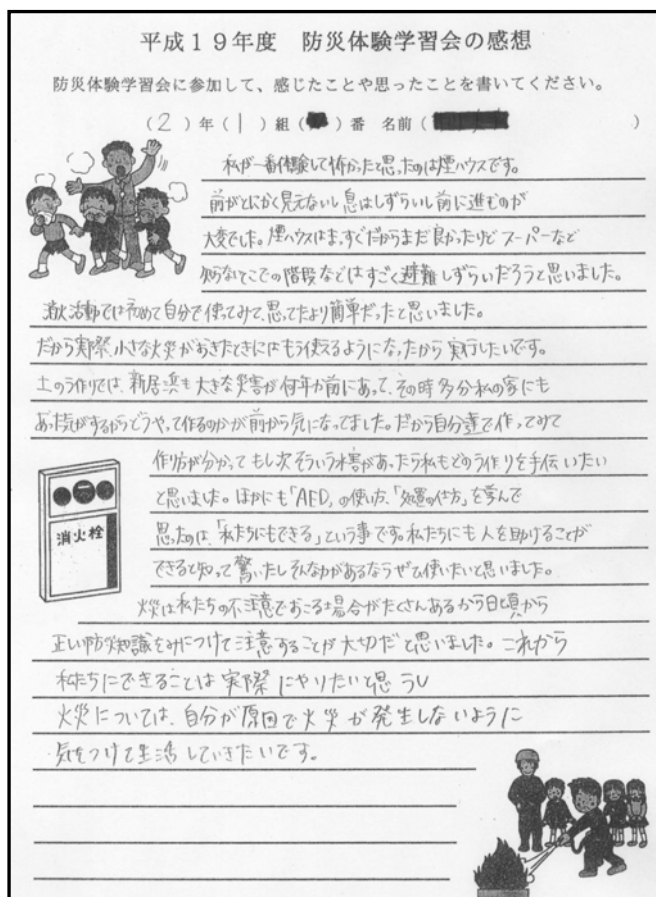 平成19年度 防災体験学習会の感想
防災体験学習会に参加して、感じたことや思ったことを書いてください。
(2)年(1)組( )番 名前( )
私が一番体験して怖かったと思ったのは煙ハウスです。
前がとにかく見えないし息はしずらいし前に進むのが
大変でした。煙ハウスはまっすぐだからまだ良かったけどスーパーなど
知らないとこでの階段などはすごく避難しずらいだろうと思いました。
消火活動では初めて自分で使ってみて、思ってたより簡単だったと思いました。
だから実際、小さな火災がおきたときにはもう使えるようになったから実行したいです。
土のう作りでは、新居浜も大きな災害が何年か前にあって、その時多分私の家にも
あった気がするからどうやって作るのかが前から気になってました。だから自分達で作ってみて
作り方が分かってもし次そういう水害があったら私もどのう作りを手伝いたい
と思いました。ほかにも「AED」の使い方、「処置の仕方」を学んで
思ったのは、「私たちにもできる」という事です。私たちにも人を助けることが
できると知って驚いたしそんな力があるならぜひ使いたいと思いました。
火災は私たちの不注意でおこる場合がたくさんあるから日頃から
正しい防災知識をみにつけて注意することが大切だと思いました。これから
私たちにできることは実際にやりたいと思うし
火災については、自分が原因で火災が発生しないように
気をつけて生活していきたいです。
消火栓